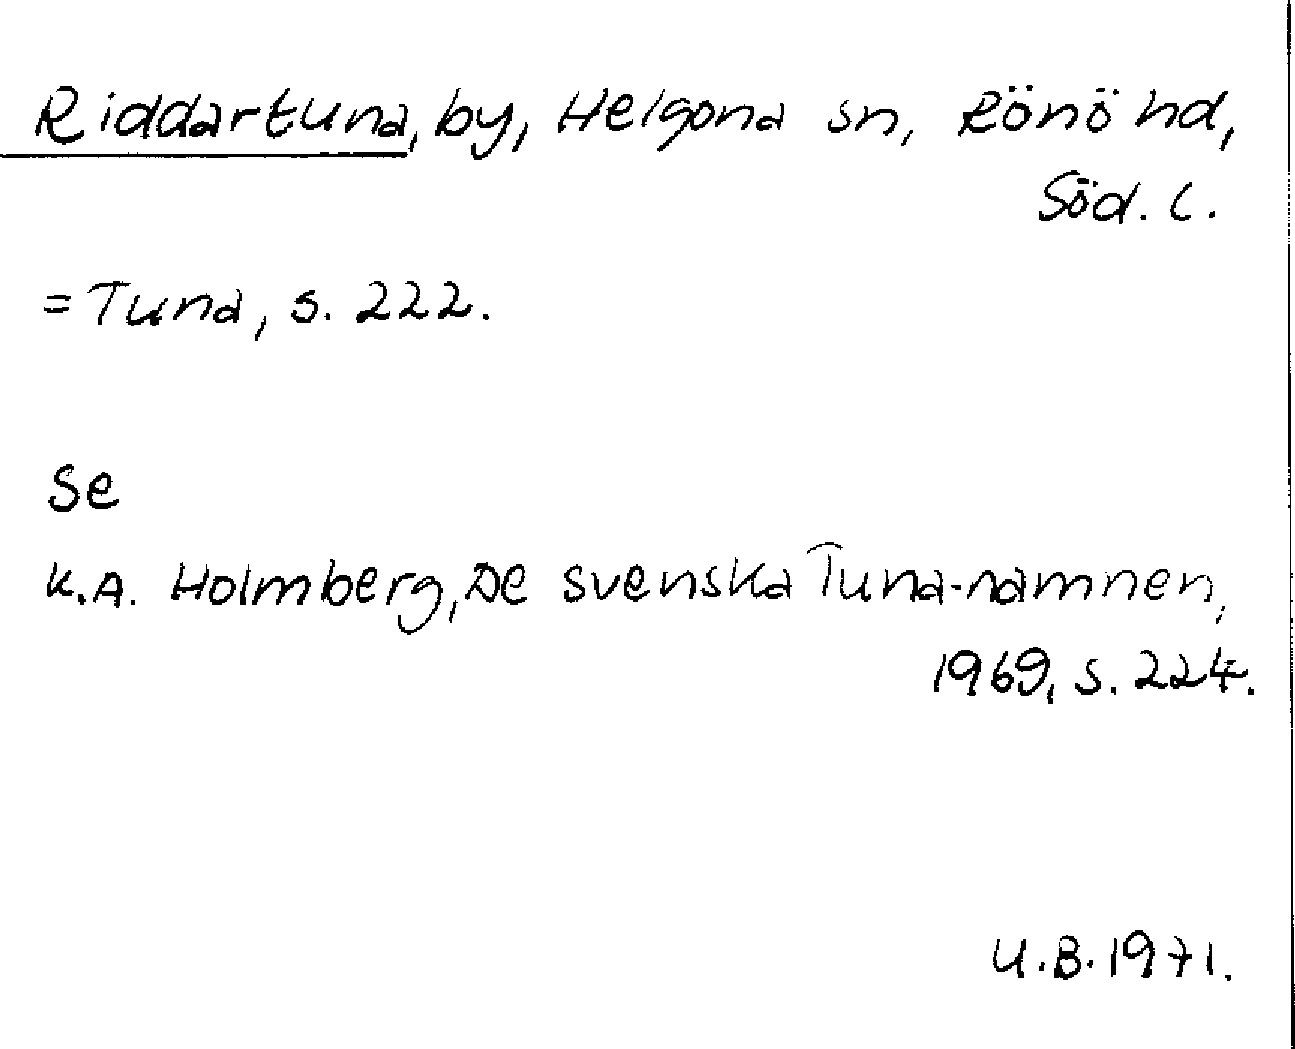 Riddartuna, by, Helgona sn, Rönö hd,
Söd. L.
= Tuna, s. 222.
Se
K.A. Holmberg, De svenska Tuna-namnen,
1969, s. 224.
U.B. 1971.